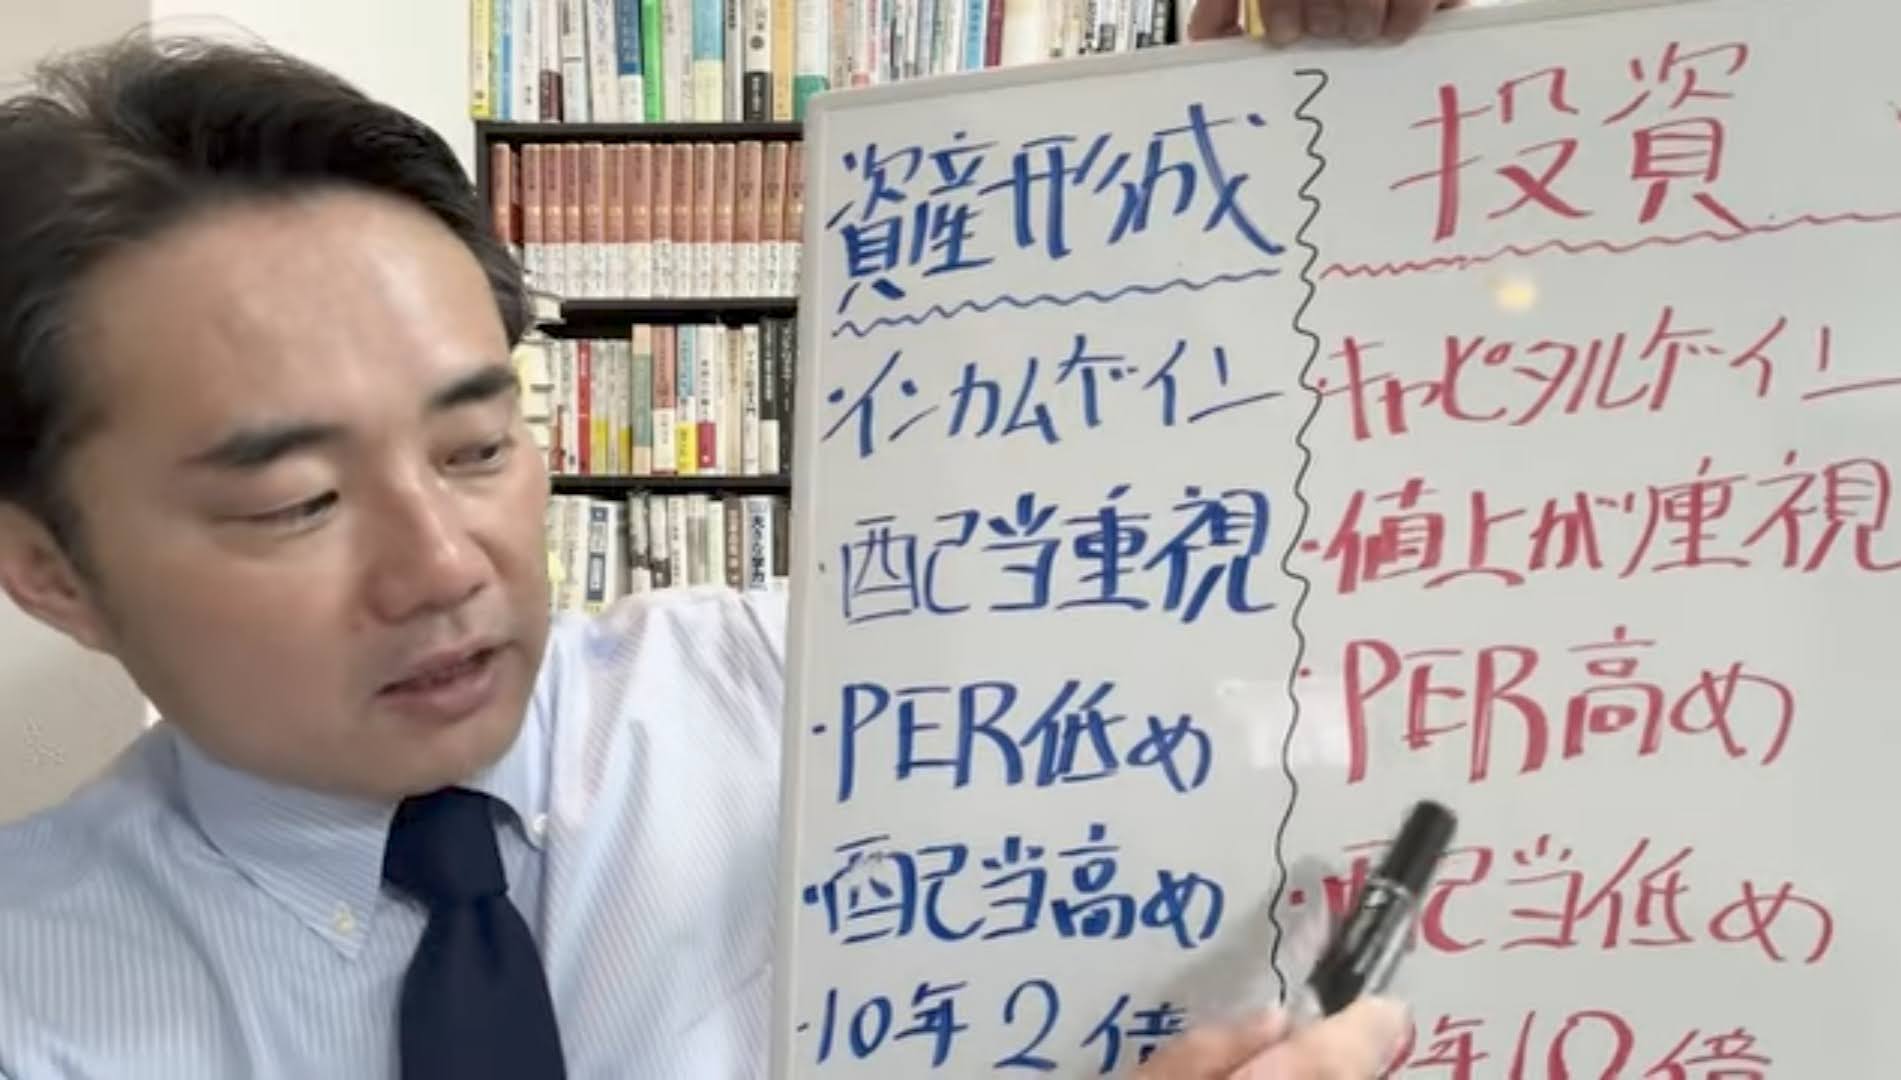 資産形成
・インカムゲイン
・配当重視
・PER低め
・配当高め
・10年2倍
投資
・キャピタルゲイン
・値上がり重視
・PER高め
・配当低め
年10倍